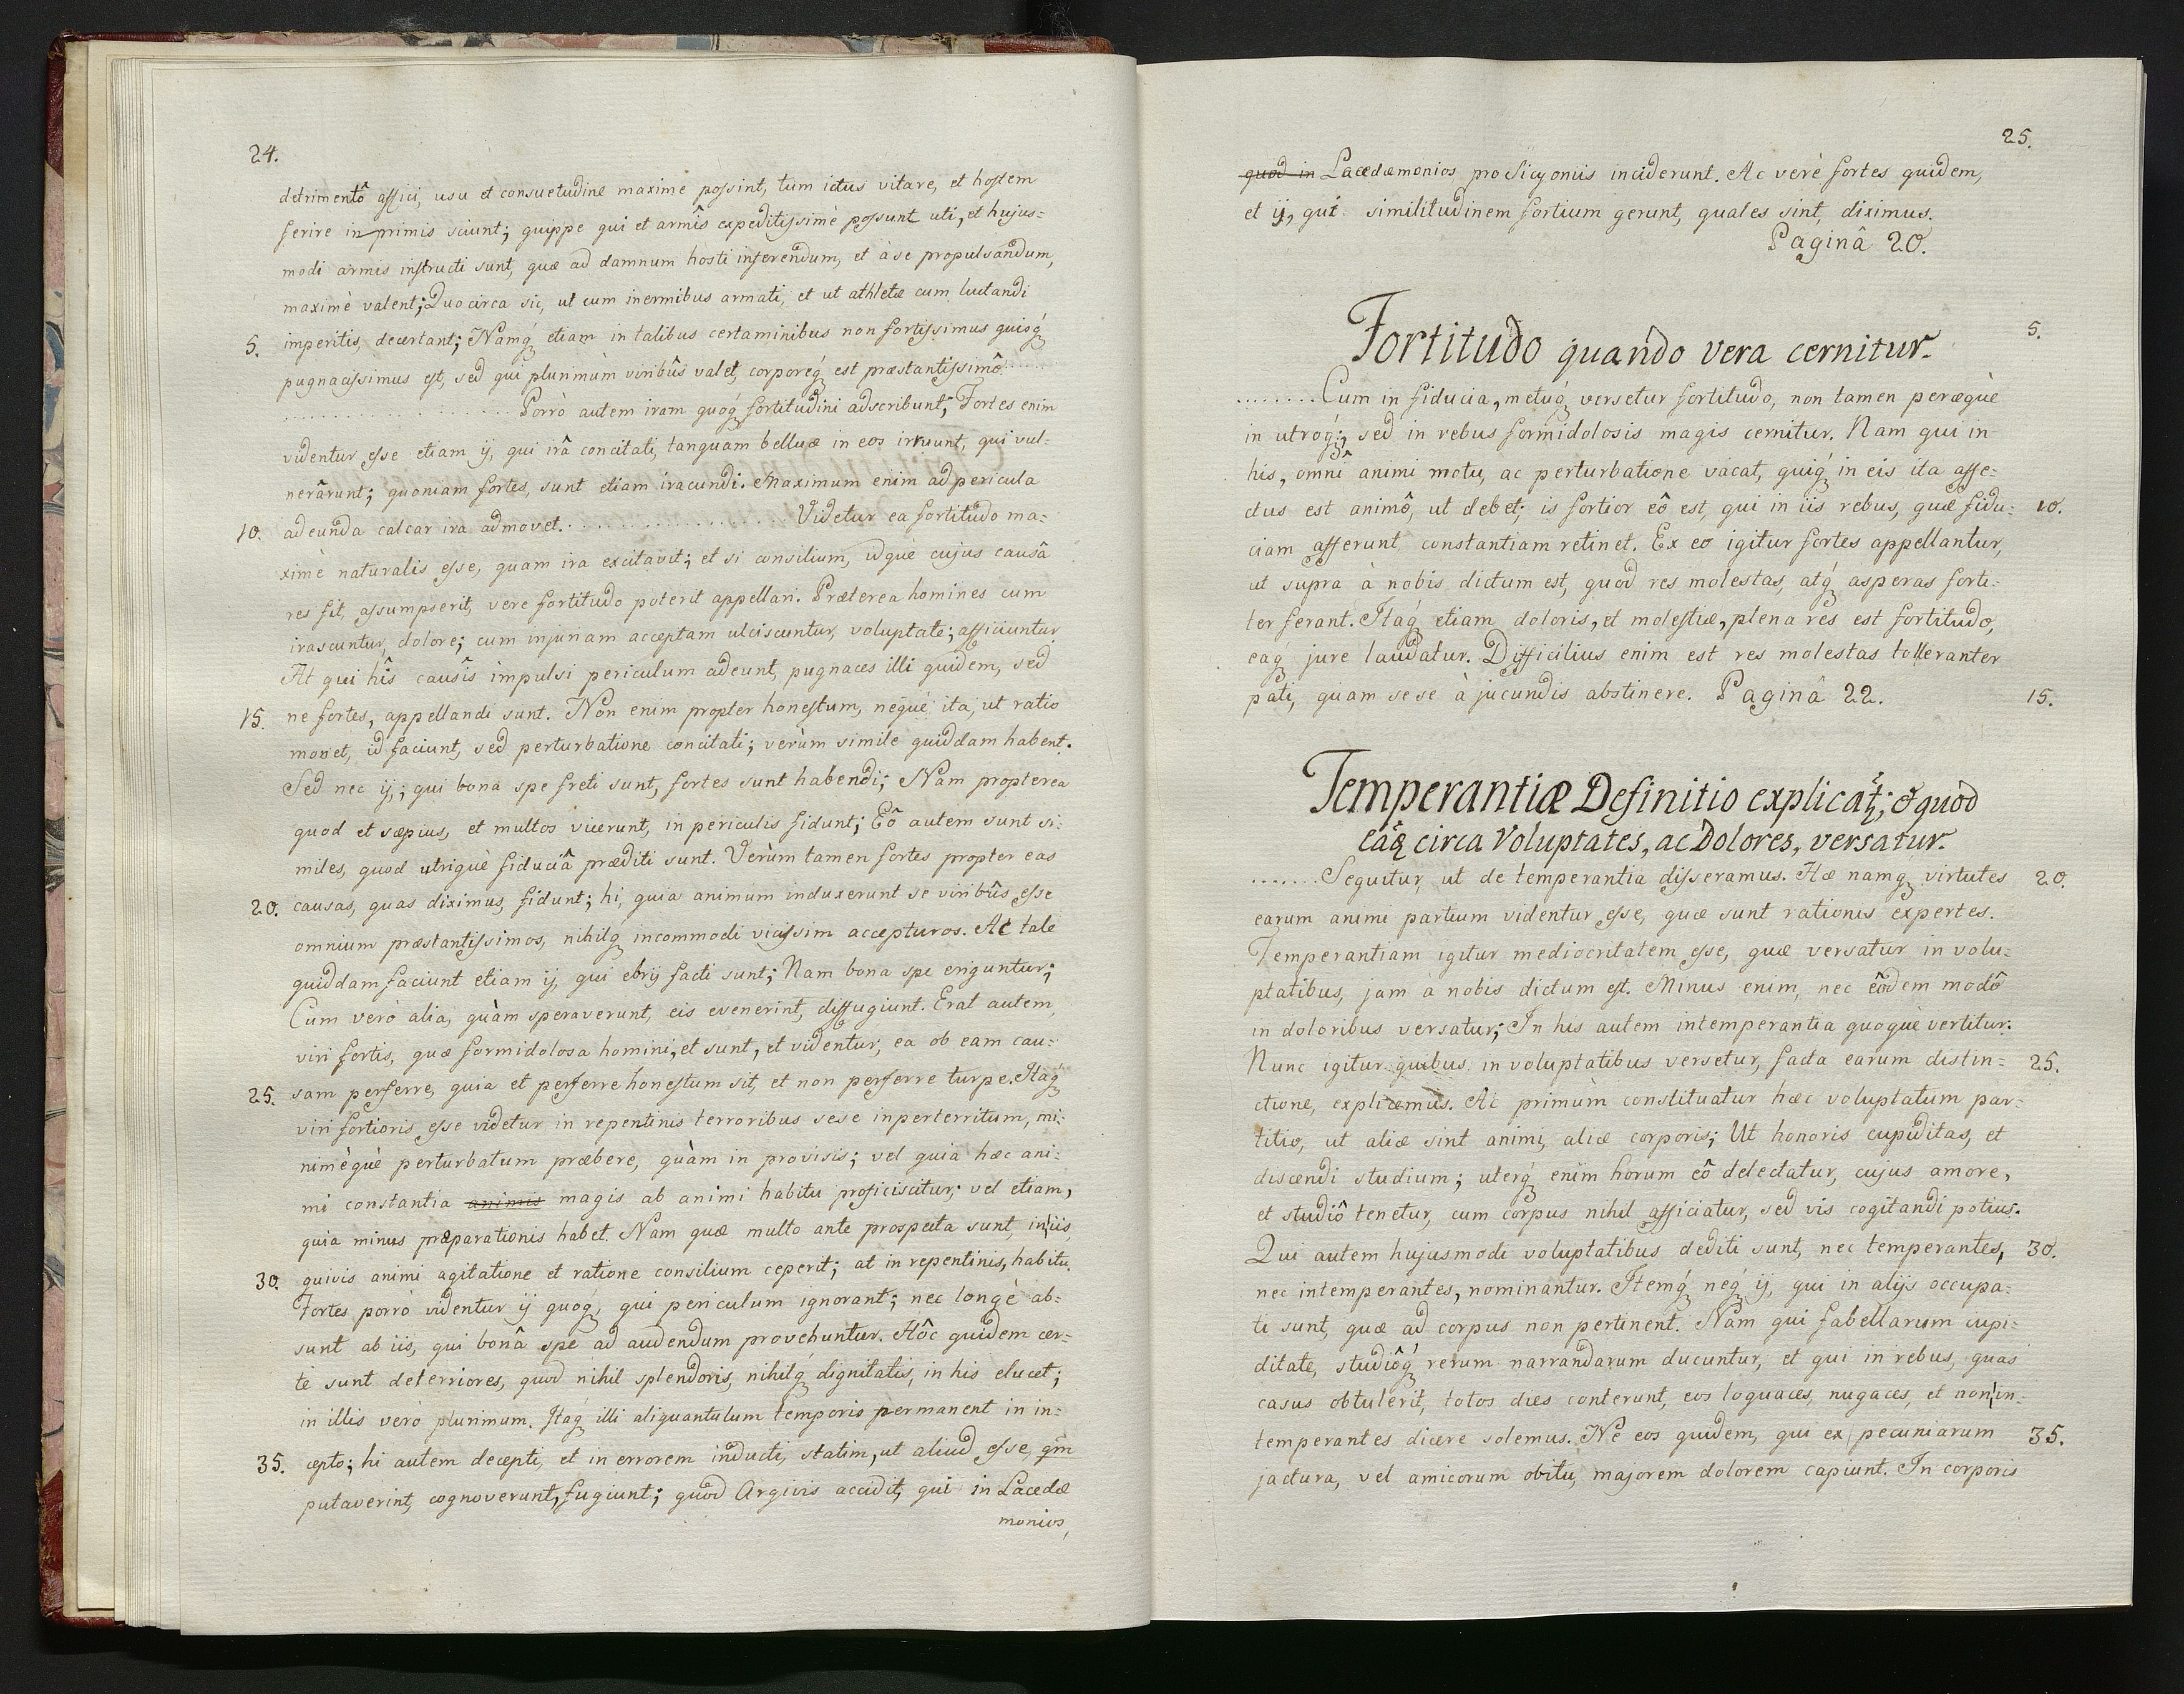 24.
detrimentô affici, usu et consuetudine maxime possint, tum ictus vitare, et hostem
ferire in primis sciunt; quippe qui et armîs expeditissimè possunt uti, et hujus=
modi armis instructi sunt, quæ ad damnum hosti inferendum, et à se propulsandum,
maximè valent; Quocirca sic, ut cum inermibus armati, et ut athletæ cum luctandi
5. imperitis, decertant; Namq́ etiam in talibus certaminibus non fortissimus quisq́
pugnacissimus est, sed qui plurimùm viribûs valet, corporéq́ est præstantissimô.......
.................... Porrò autem iram quoq́ fortitudini adscribunt; Fortes enim
videntur esse etiam ij, qui irâ concitati, tanquam belluæ in eos irruunt, qui vul=
nerârunt; quoniam fortes, sunt etiam iracundi. Maximum enim ad pericula
10. adeunda calcar ira admovet. .................... Videtur ea fortitudo ma=
ximè naturalis esse, quam ira excitavit; et si consilium, idquè cujus causâ
res fit, assumpserit, vere fortitudo poterit appellari. Præterea homines cum
irascuntur, dolore; cum injuriam acceptam ulciscuntur, voluptate; afficiuntur
At qui hîs causîs impulsi periculum adeunt, pugnaces illi quidem, sed
15. ne fortes, appellandi sunt. Non enim propter honestum, nequè ita, ut ratio
monet, id faciunt, sed perturbatione concitati; verùm simile quiddam habent.
Sed nec ij; qui bona spe freti sunt, fortes sunt habendi; Nam propterea
quod et sæpius, et multos vicerunt, in periculis fidunt; Eô autem sunt si=
miles, quod utriquè fiduciâ præditi sunt. Verùm tamen fortes propter eas
20. causas, quas diximus, fidunt; hi, quia animum induxerunt se viribûs esse
omnium præstantissimos, nihilq́ incommodi vicissim accepturos. At tale
quiddam faciunt etiam ij, qui ebrij facti sunt; Nam bona spe eriguntur;
Cum verò alia, quàm speraverunt, eis evenerint, diffugiunt. Erat autem
viri fortis, quæ formidolosa homini, et sunt, et videntur, ea ob eam cau=
25. sam perferre, quia et perferre honestum sit, et non perferre turpe. Itaq́
viri fortioris esse videtur in repentinis terroribus sese inperterritum, mi=
nimèquè perturbatum præbere, quàm in provisis; vel quia hæc ani=
mi constantia animis magis ab animi habitu proficiscitur; vel etiam,
quia minus præparationis habet. Nam quæ multo ante prospecta sunt, in iis,
30. quivis animi agitatione et ratione consilium ceperit; at in repentinis, habitu.
Fortes porrò videntur ij quoq́, qui periculum ignorant; nec longè ab=
sunt ab iis, qui bonâ spe ad audendum provehuntur. Hôc quidem cer=
te sunt deterriores, quod nihil splendoris, nihilq́ dignitatis, in his elucet;
in illis verò plurimum. Itaq́ illi aliquantulum temporis permanent in in=
35. cepto; hi autem decepti, et in errorem inducti, statim, ut aliud esse, qm̄
putaverint, cognoverunt, fugiunt; quod Argivis accidit, qui in Lacedæ
monios,
25.
quod in Lacedæmonios pro Sicyoniis inciderunt. Ac verè fortes quidem,
et ij, qui similitudinem fortium gerunt, quales sint, diximus.
Paginâ 20.
Fortitudo quando vera cernitur.
5.
........Cum in fiducia, metuq́ versetur fortitudo, non tamen peræquè
in utroq́;, sed in rebus formidolosis magis cernitur. Nam qui in
his, omnî animi motu, ac perturbatione vacat, quiq́ in eis ita affe=
ctus est animô, ut debet; is fortior eô est, qui in iis rebus, quæ fidu= 10.
ciam afferunt, constantiam retinet. Ex eo igitur fortes appellantur,
ut supra à nobis dictum est, quod res molestas, atq́ asperas forti=
ter ferant. Itaq́ etiam doloris, et molestiæ, plena res est fortitudo,
eaq́ jure laudatur. Difficilius enim est res molestas tolleranter
pati, quam sese à jucundis abstinere. Paginâ 22. 15.
Temperantiæ Definitio explicat̃; & quod
eaq́ circa Voluptates, ac Dolores, versatur.
.......Sequitur, ut de temperantia disseramus. Hæ namq́ virtutes 20.
earum animi partium videntur esse, quæ sunt rationis expertes.
Temperantiam igitur mediocritatem esse, quæ versatur in volu=
ptatibus, jam à nobis dictum est. Minus enim, nec eôdem modô
in doloribus versatur; In his autem intemperantia quoquè vertitur.
Nunc igitur quibus in voluptatibus versetur, facta earum distin= 25.
ctione, explicemus. Ac primùm constituatur hæc voluptatum par=
titio, ut aliæ sint animi, aliæ corporis; Ut honoris cupiditas, et
discendi studium; uterq́ enim horum eô delectatur, cujus amore,
et studiô tenetur, cum corpus nihil afficiatur, sed vis cogitandi potius.
Qui autem hujusmodi voluptatibus dediti sunt, nec temperantes, 30.
nec intemperantes, nominantur. Itemq́ neq́ ij, qui in alijs occupa=
ti sunt, quæ ad corpus non pertinent. Nam qui fabellarum cupi=
ditate, studiôq́ rerum narrandarum ducuntur, et qui in rebus, quas
casus obtulerit, totos dies conterunt, eos loquaces, nugaces, et non in=
temperantes dicere solemus. Ne eos quidem, qui ex pecuniarum 35.
jactura, vel amicorum obitu, majorem dolorem capiunt. In corporis